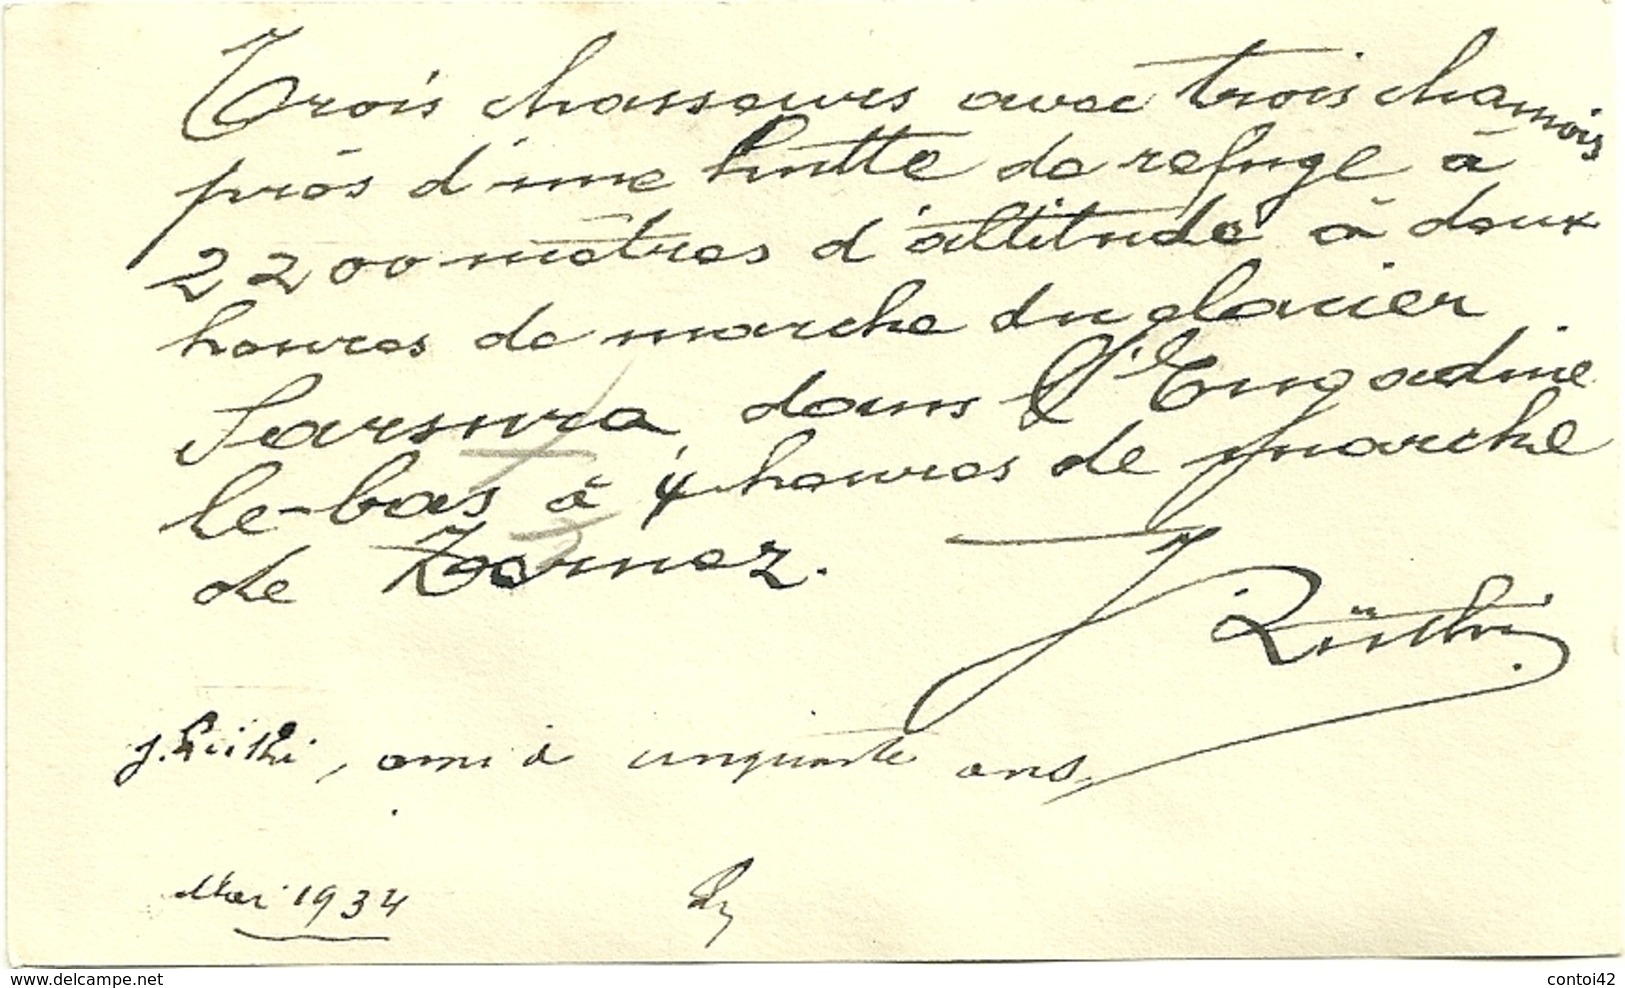 Trois chasseurs avec trois chamois
près d'une hutte de refuge à
2200 mètres d'altitude à deux
heures de marche du glacier
Sarsura, dans l'Engadine
le-bas à 4 heures de marche
de Zernez.
J Rüthi
J. Rüthi, ami à cinquante ans,
Mai 1934
delcampe.net
contoi42